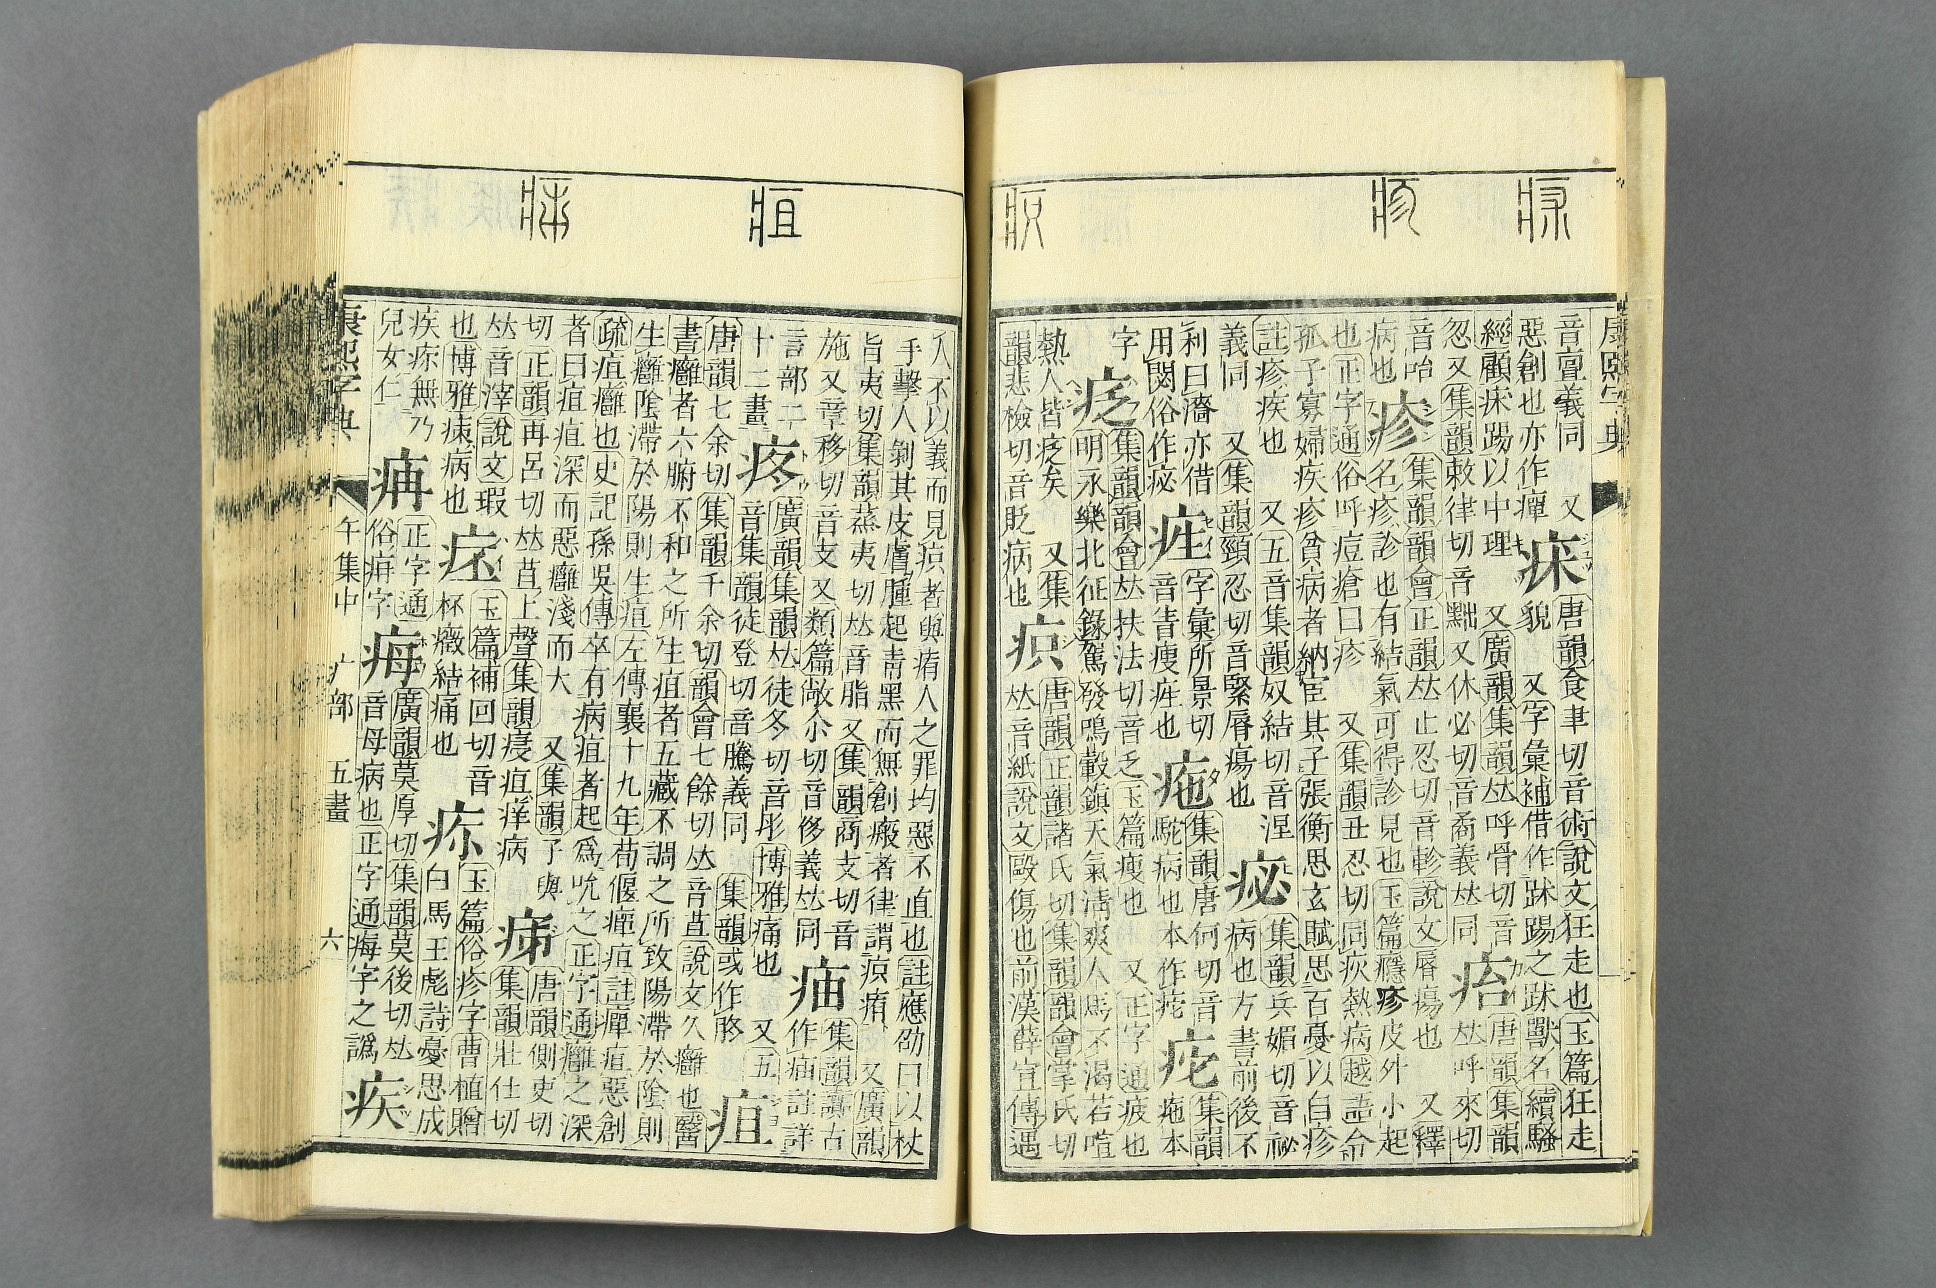 疹
疻
疽
康熙字典
音亶義同　又
惡創也亦作癉
唐韻食聿切音術說文狂走也玉篇狂走
貌　又字彙補借作踢之獸名續騷
經顧踢以中理　又廣韻集韻𠀤呼骨切音
忽又集韻敕律切音黜又休必切音矞義𠀤同
唐韻集韻
𠀤呼來切
音咍
病也
疹
集韻韻會正韻𠀤止忍切音軫說文脣瘍也　又釋
名疹診也有結氣可得診見也玉篇癮疹皮外小起
也正字通俗呼痘瘡曰疹　又集韻丑忍切同疢熱病越語令
孤子寡婦疾疹貧病者納宦其子張衡思玄賦思百憂以自疹
註疹疾也　又五音集韻奴結切音涅
義同　又集韻頸忍切音緊脣瘍也
集韻兵媚切音祕
病也方書前後不
利曰亦借
用閟俗作
字彙所景切
音眚瘦也
集韻唐何切音
駝病也本作
集韻
本
字
疺
集韻韻會𠀤扶法切音乏玉篇瘦也　又正字通疲也
明永樂北征錄駕發鳴轂鎮天氣清爽人馬不渴若喧
熱人皆疺矣　又集
韻悲檢切音貶病也
疻
唐韻正韻諸氏切集韻韻會掌氏切
𠀤音紙說文毆傷也前漢薛宣傳遇
人不以義而見疻者與痏人之罪均惡不直也註應劭曰以杖
手擊人剝其皮膚腫起青黑而無創瘢者律謂疻痏　又廣韻
旨夷切集韻蒸夷切𠀤音脂又集韻商支切音
施又章移切音支又類篇敞尒切音侈義𠀤同
集韻讀古
作註詳
言部二
十二畫
疼
廣韻集韻𠀤徒冬切音彤博雅痛也　又五
音集韻徒登切音騰義同　集韻或作胳
疽
唐韻七余切集韻千余切韻會七餘切𠀤音苴說文久癰也醫
書癰者六腑不和之所生疽者五藏不調之所致陽滯於陰則
生癰陰滯於陽則生疽左傳襄十九年荀偃癉疽註癉疽惡創
疏疽癰也史記孫吳傳卒有病疽者起爲吮之正字通癰之深
者曰疽疽深而惡癰淺而大　又集韻子與
切正韻再呂切𠀤苴上聲集韻疽痒病
唐韻側史切
集韻壯仕切
𠀤音滓說文瑕
也博雅病也
玉篇補回切音
杯癥結痛也
玉篇俗疹字曹植贈
白馬王彪詩憂思成
疾無乃
兒女仁
正字通
俗字
廣韻莫厚切集韻莫後切𠀤
音母病也正字通痗字之譌
康熙字典　午集中　疒部　五畫　六